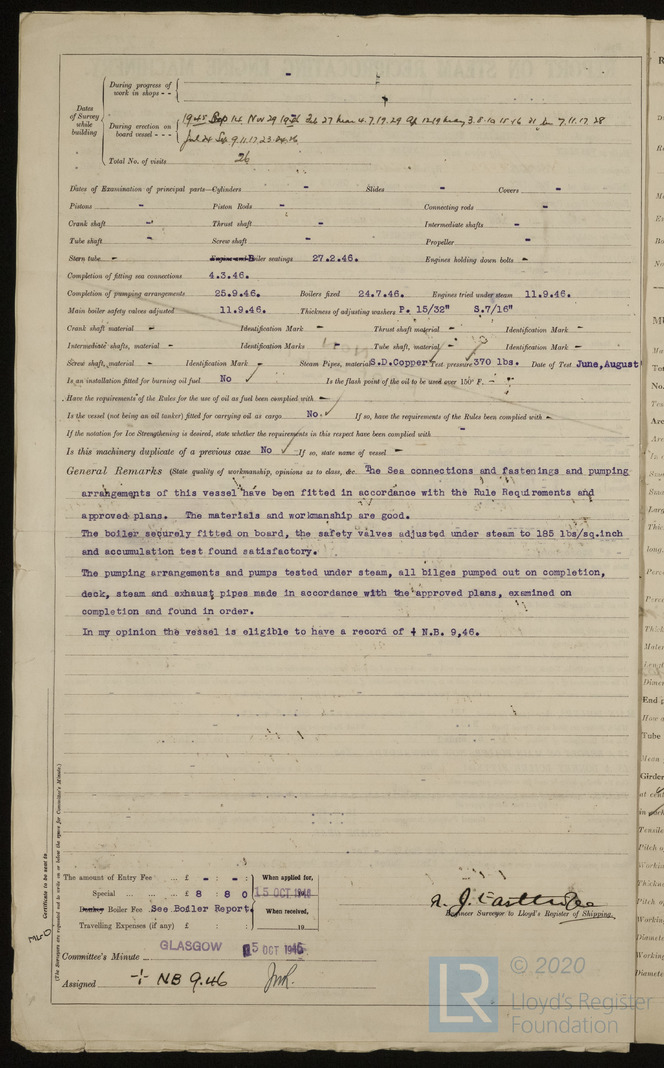 Dates of Survey while building
During progress of work in shops - - -
During erection on board vessel - - -
1945 Sep 14 Nov 29 1946 Feb 27 Mar 4.7.19.29 Ap 12.19 May 3.8.10.15.16 31 Jun 7.11.17 28
Sep 9.11.17.23.24.26
Total No. of visits 26
Dates of Examination of principal parts—Cylinders - Slides - Covers -
Pistons - Piston Rods - Connecting rods -
Crank shaft - Thrust shaft - Intermediate shafts -
Tube shaft - Screw shaft - Propeller -
Stern tube - Engine and Boiler seatings 27.2.46. Engines holding down bolts -
Completion of fitting sea connections 4.3.46.
Completion of pumping arrangements 25.9.46. Boilers fixed 24.7.46. Engines tried under steam 11.9.46.
Main boiler safety valves adjusted 11.9.46. Thickness of adjusting washers P. 15/32" S.7/16"
Crank shaft material - Identification Mark - Thrust shaft material - Identification Mark -
Intermediate shafts, material - Identification Marks - Tube shaft, material - Identification Mark -
Screw shaft, material - Identification Mark - Steam Pipes, material S.D.Copper Test pressure 370 lbs. Date of Test June, August
Is an installation fitted for burning oil fuel No Is the flash point of the oil to be used over 150° F. -
Have the requirements of the Rules for the use of oil as fuel been complied with -
Is the vessel (not being an oil tanker) fitted for carrying oil as cargo No. If so, have the requirements of the Rules been complied with -
If the notation for Ice Strengthening is desired, state whether the requirements in this respect have been complied with -
Is this machinery duplicate of a previous case No If so, state name of vessel -
General Remarks (State quality of workmanship, opinions as to class, &c. The Sea connections and fastenings and pumping
arrangements of this vessel have been fitted in accordance with the Rule Requirements and
approved plans. The materials and workmanship are good.
The boiler securely fitted on board, the safety valves adjusted under steam to 185 lbs/sq.inch
and accumulation test found satisfactory.
The pumping arrangements and pumps tested under steam, all bilges pumped out on completion,
deck, steam and exhaust pipes made in accordance with the approved plans, examined on
completion and found in order.
In my opinion the vessel is eligible to have a record of + N.B. 9,46.
Certificate to be sent to
(The Surveyors are requested not to write on or below the space for Committee's Minute.)
The amount of Entry Fee ... £ - : - : When applied for,
Special ... £ 8 : 8 0 15 OCT 1946
Donkey Boiler Fee See Boiler Report. When received,
Travelling Expenses (if any) £ : : 19
Engineer Surveyor to Lloyd's Register of Shipping.
Committee's Minute GLASGOW 15 OCT 1946
Assigned + NB 9.46
LR © 2020
Lloyd's Register
Foundation